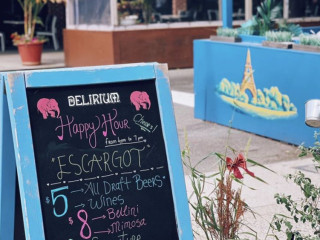 DELIRIUM
Happy Hour
from 4pm to 7pm
ESCARGOT
$5 → All Draft Beers
→ Wines
$8 → Bellini
→ Mimosa